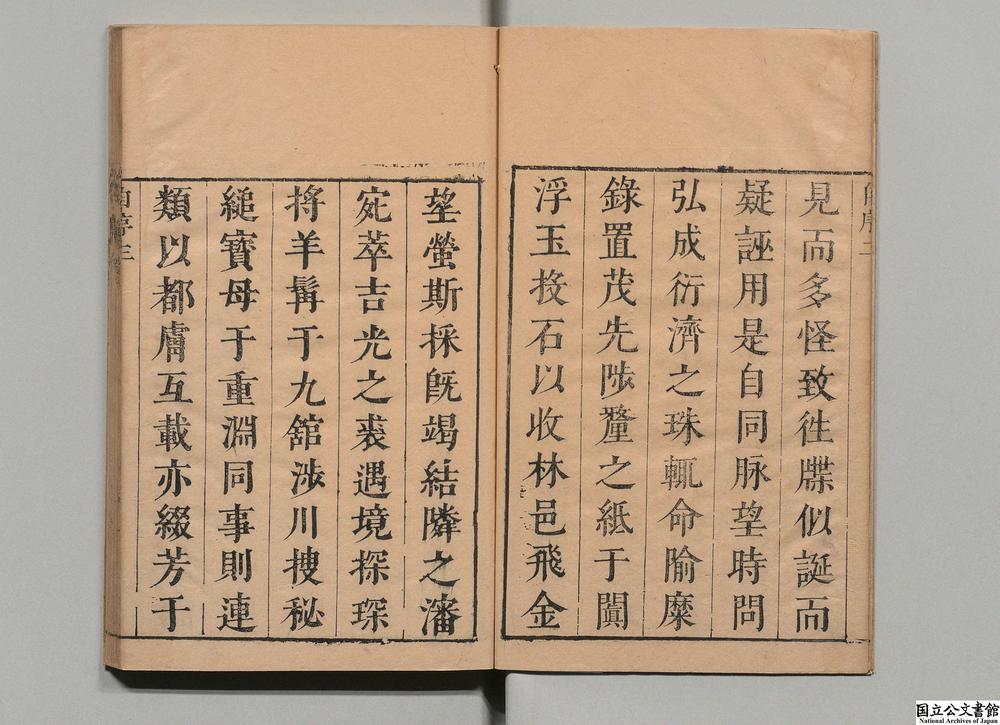 見而多怪致徃牒似誕而
疑誣用是自同脉望時問
弘成衍濟之珠輒命隃糜
錄置茂先陟釐之紙于闐
浮玉投石以收林邑飛金
望螢斯採旣竭結隣之瀋
宛萃吉光之裘遇境探琛
捋羊髯于九舘涉川搜秘
縋寶母于重淵同事則連
類以都膚互載亦綴芳于
国立公文書館
National Archives of Japan